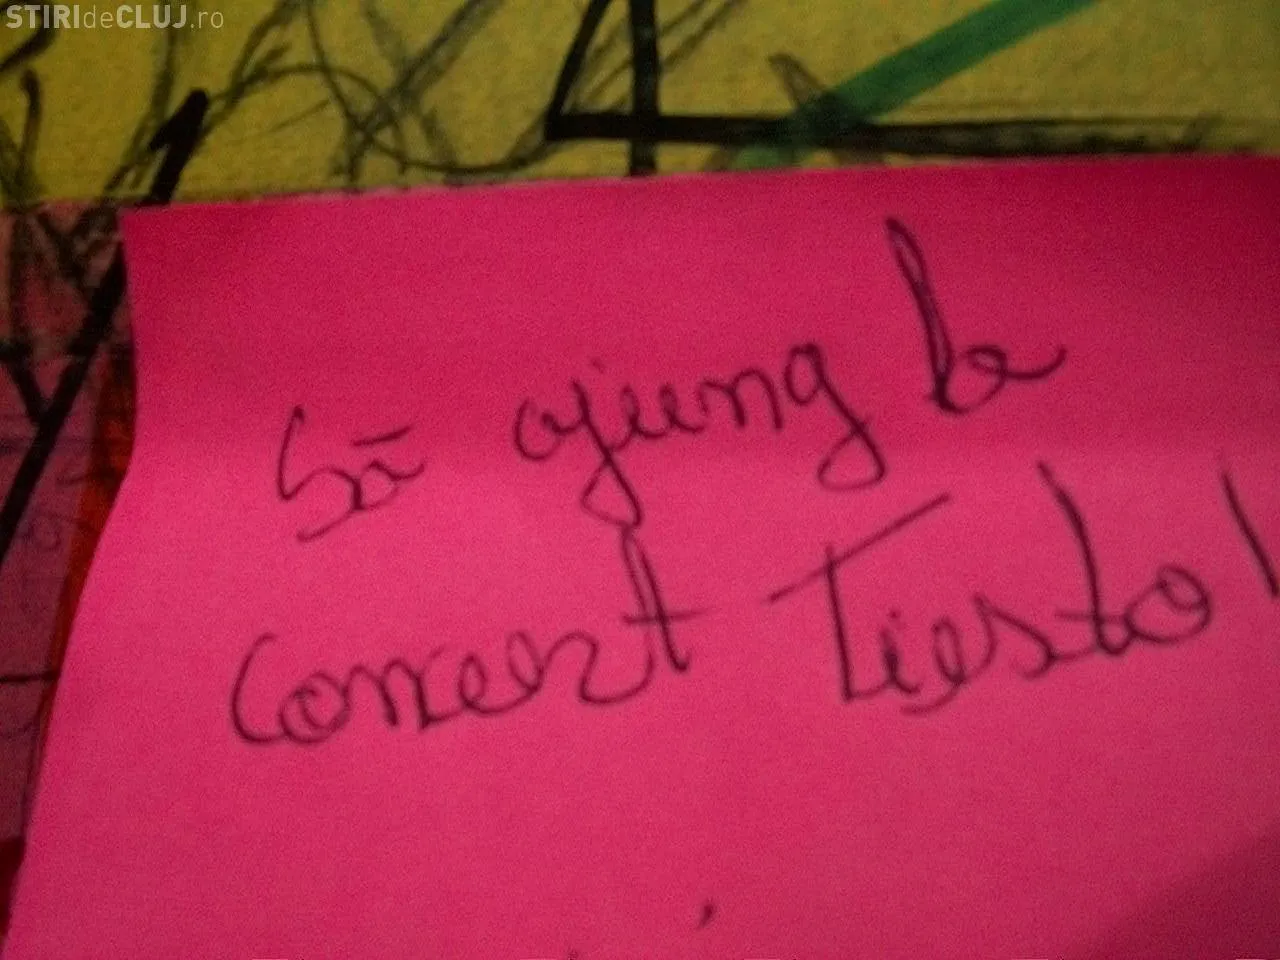 STIRIdeCLUJ.ro
Să ajung la
concert Tiesto!